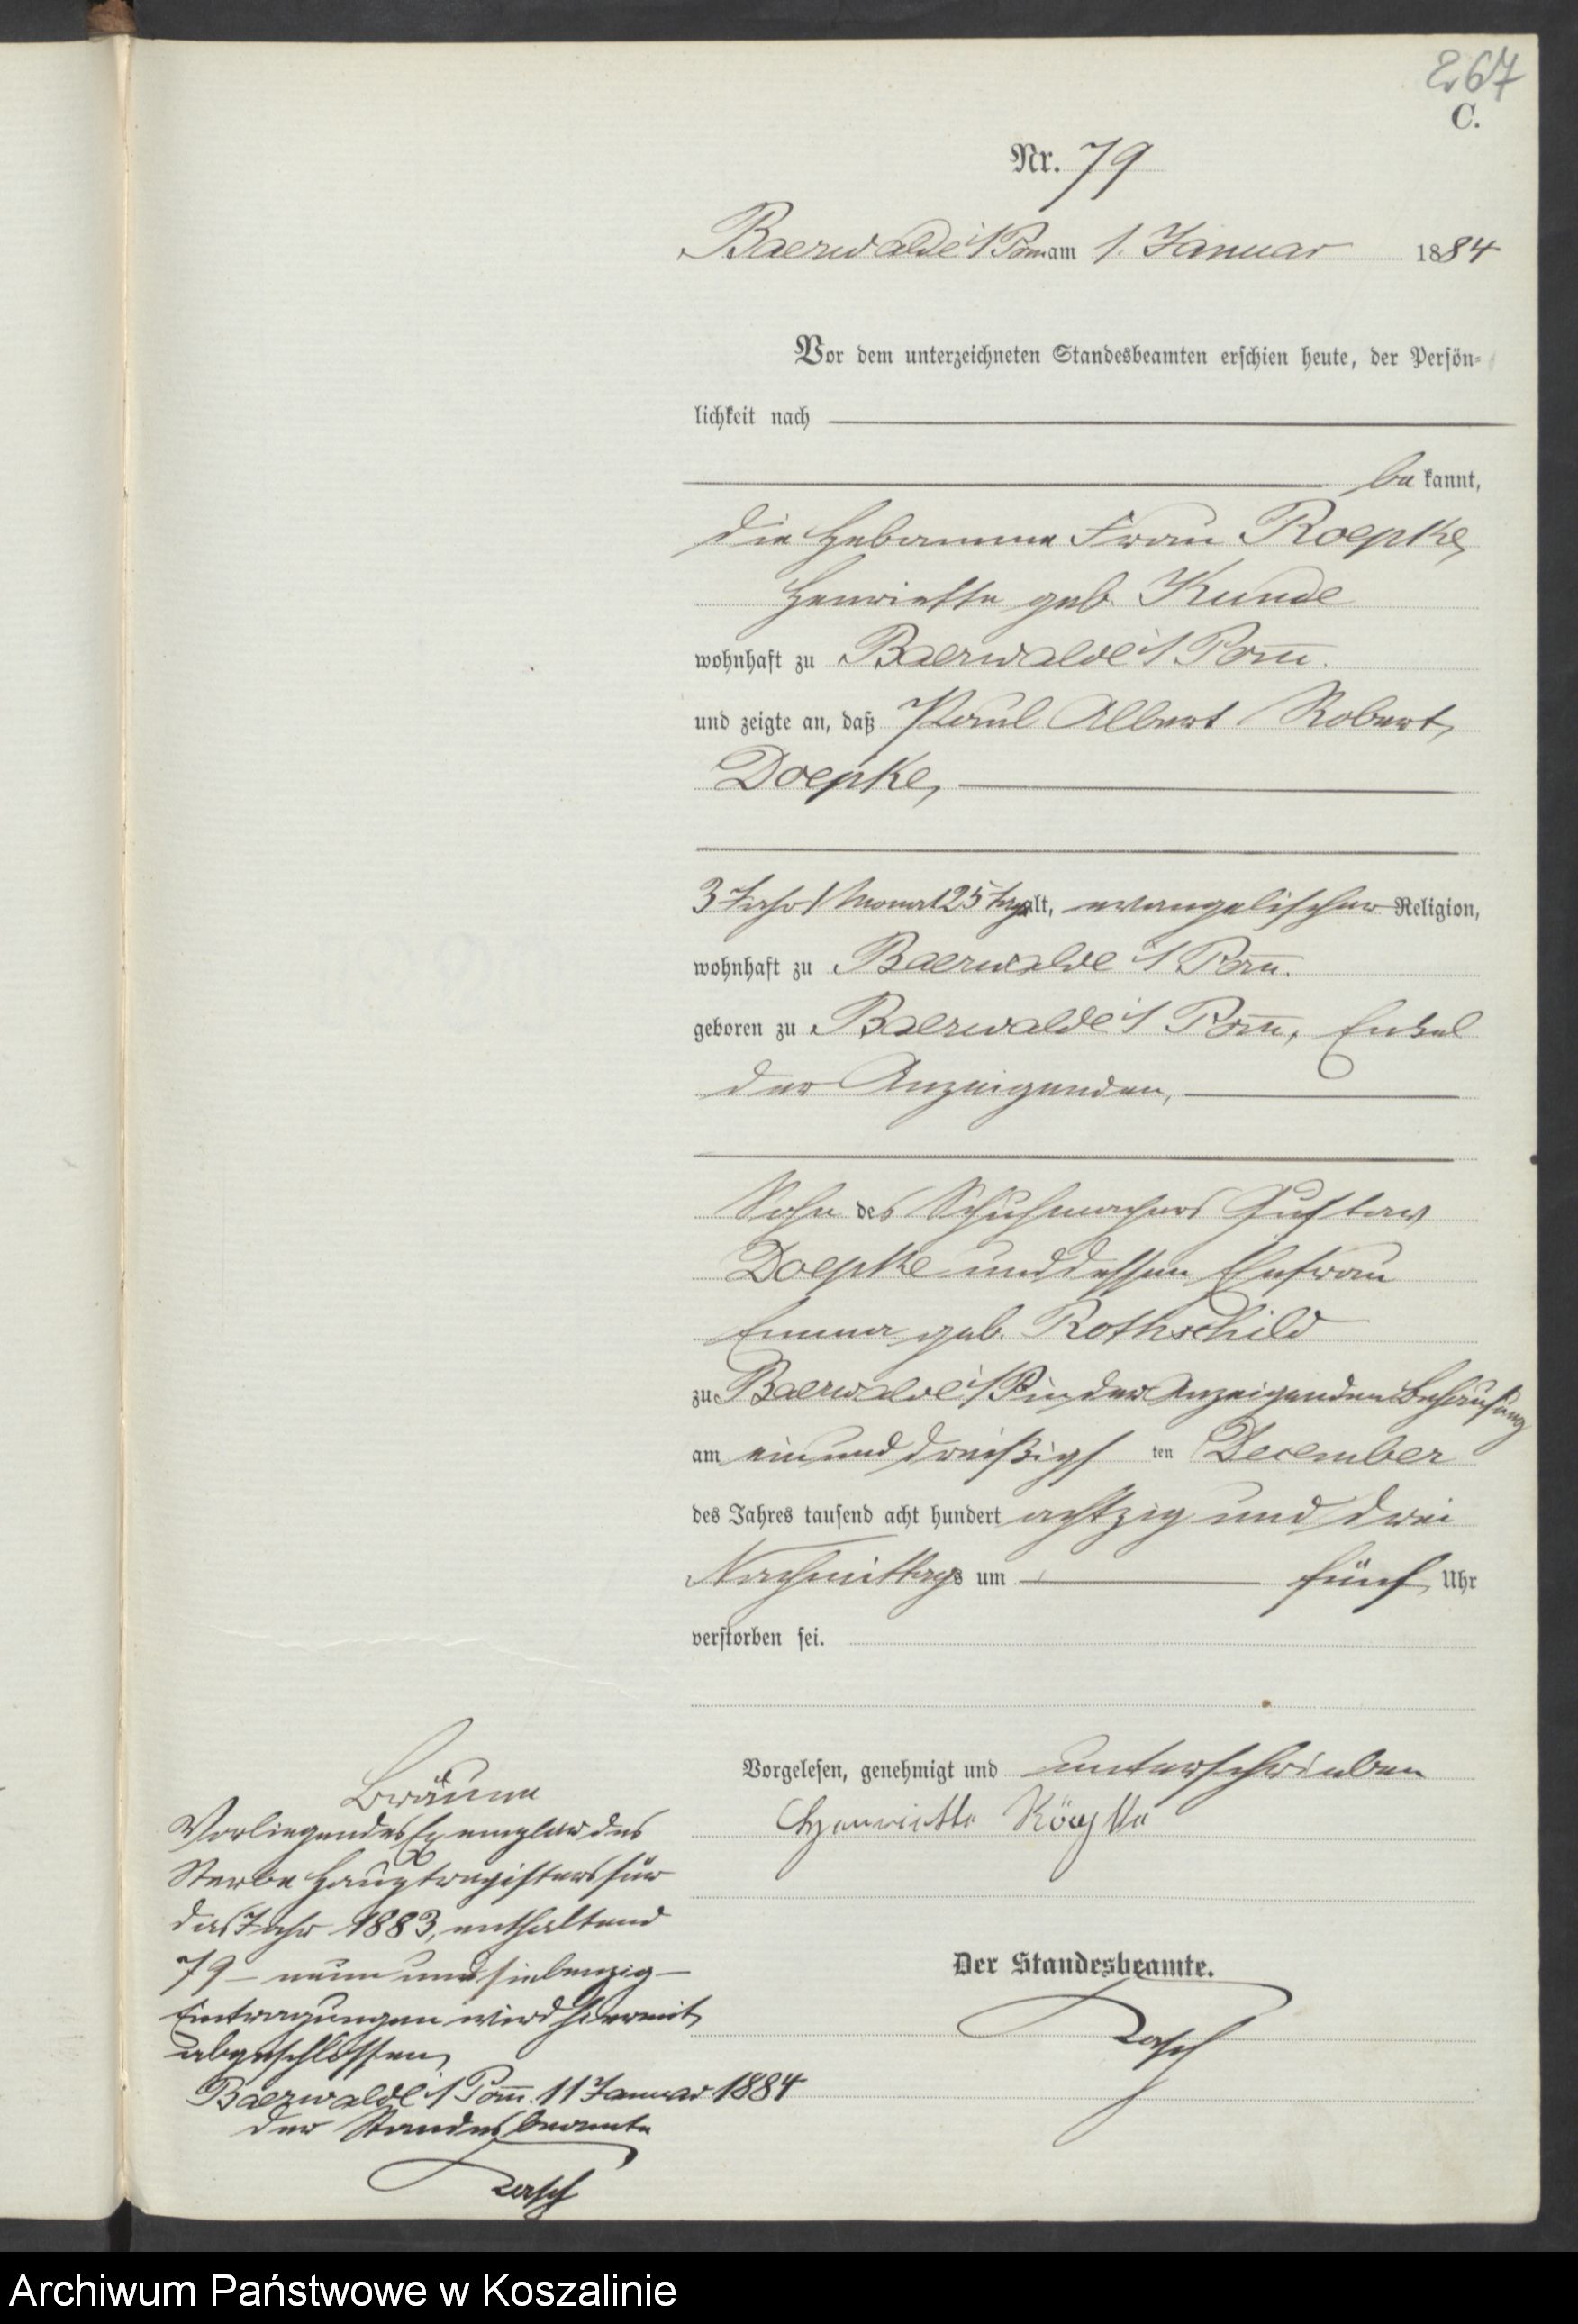 267
C.
Nr. 79
Baerwalde i/Pom am 1. Januar 1884
Vor dem unterzeichneten Standesbeamten erschien heute, der Persön-
lichkeit nach
be kannt,
die Hebamme Frau Roepke,
Henriette geb. Kunde
wohnhaft zu Baerwalde i/Pom.
und zeigte an, daß Paul Albert Robert,
Doepke,
3 Jahr 1 Monat 25 Tage alt, evangelischer Religion,
wohnhaft zu Baerwalde i/Pom.
geboren zu Baerwalde i/Pom, Enkel
der Anzeigenden,
Sohn des Schuhmachers Gustav
Doepke und dessen Ehefrau
Emma geb. Rothschild
zu Baerwalde i/P in der Anzeigenden Behausung
am ein und dreißigs ten December
des Jahres tausend acht hundert achtzig und drei
Nachmittags um fünf Uhr
verstorben sei.
Vorgelesen, genehmigt und unterschrieben
Henriette Röepke
Der Standesbeamte.
Rasch
Bräune
Vorliegendes Exemplar des
Sterbe Hauptregisters für
das Jahr 1883, enthaltend
79 – neun und siebenzig –
Eintragungen wird hiermit
abgeschlossen,
Baerwalde i/Pom. 11 Januar 1884
Der Standesbeamte
Rasch
Archiwum Państwowe w Koszalinie